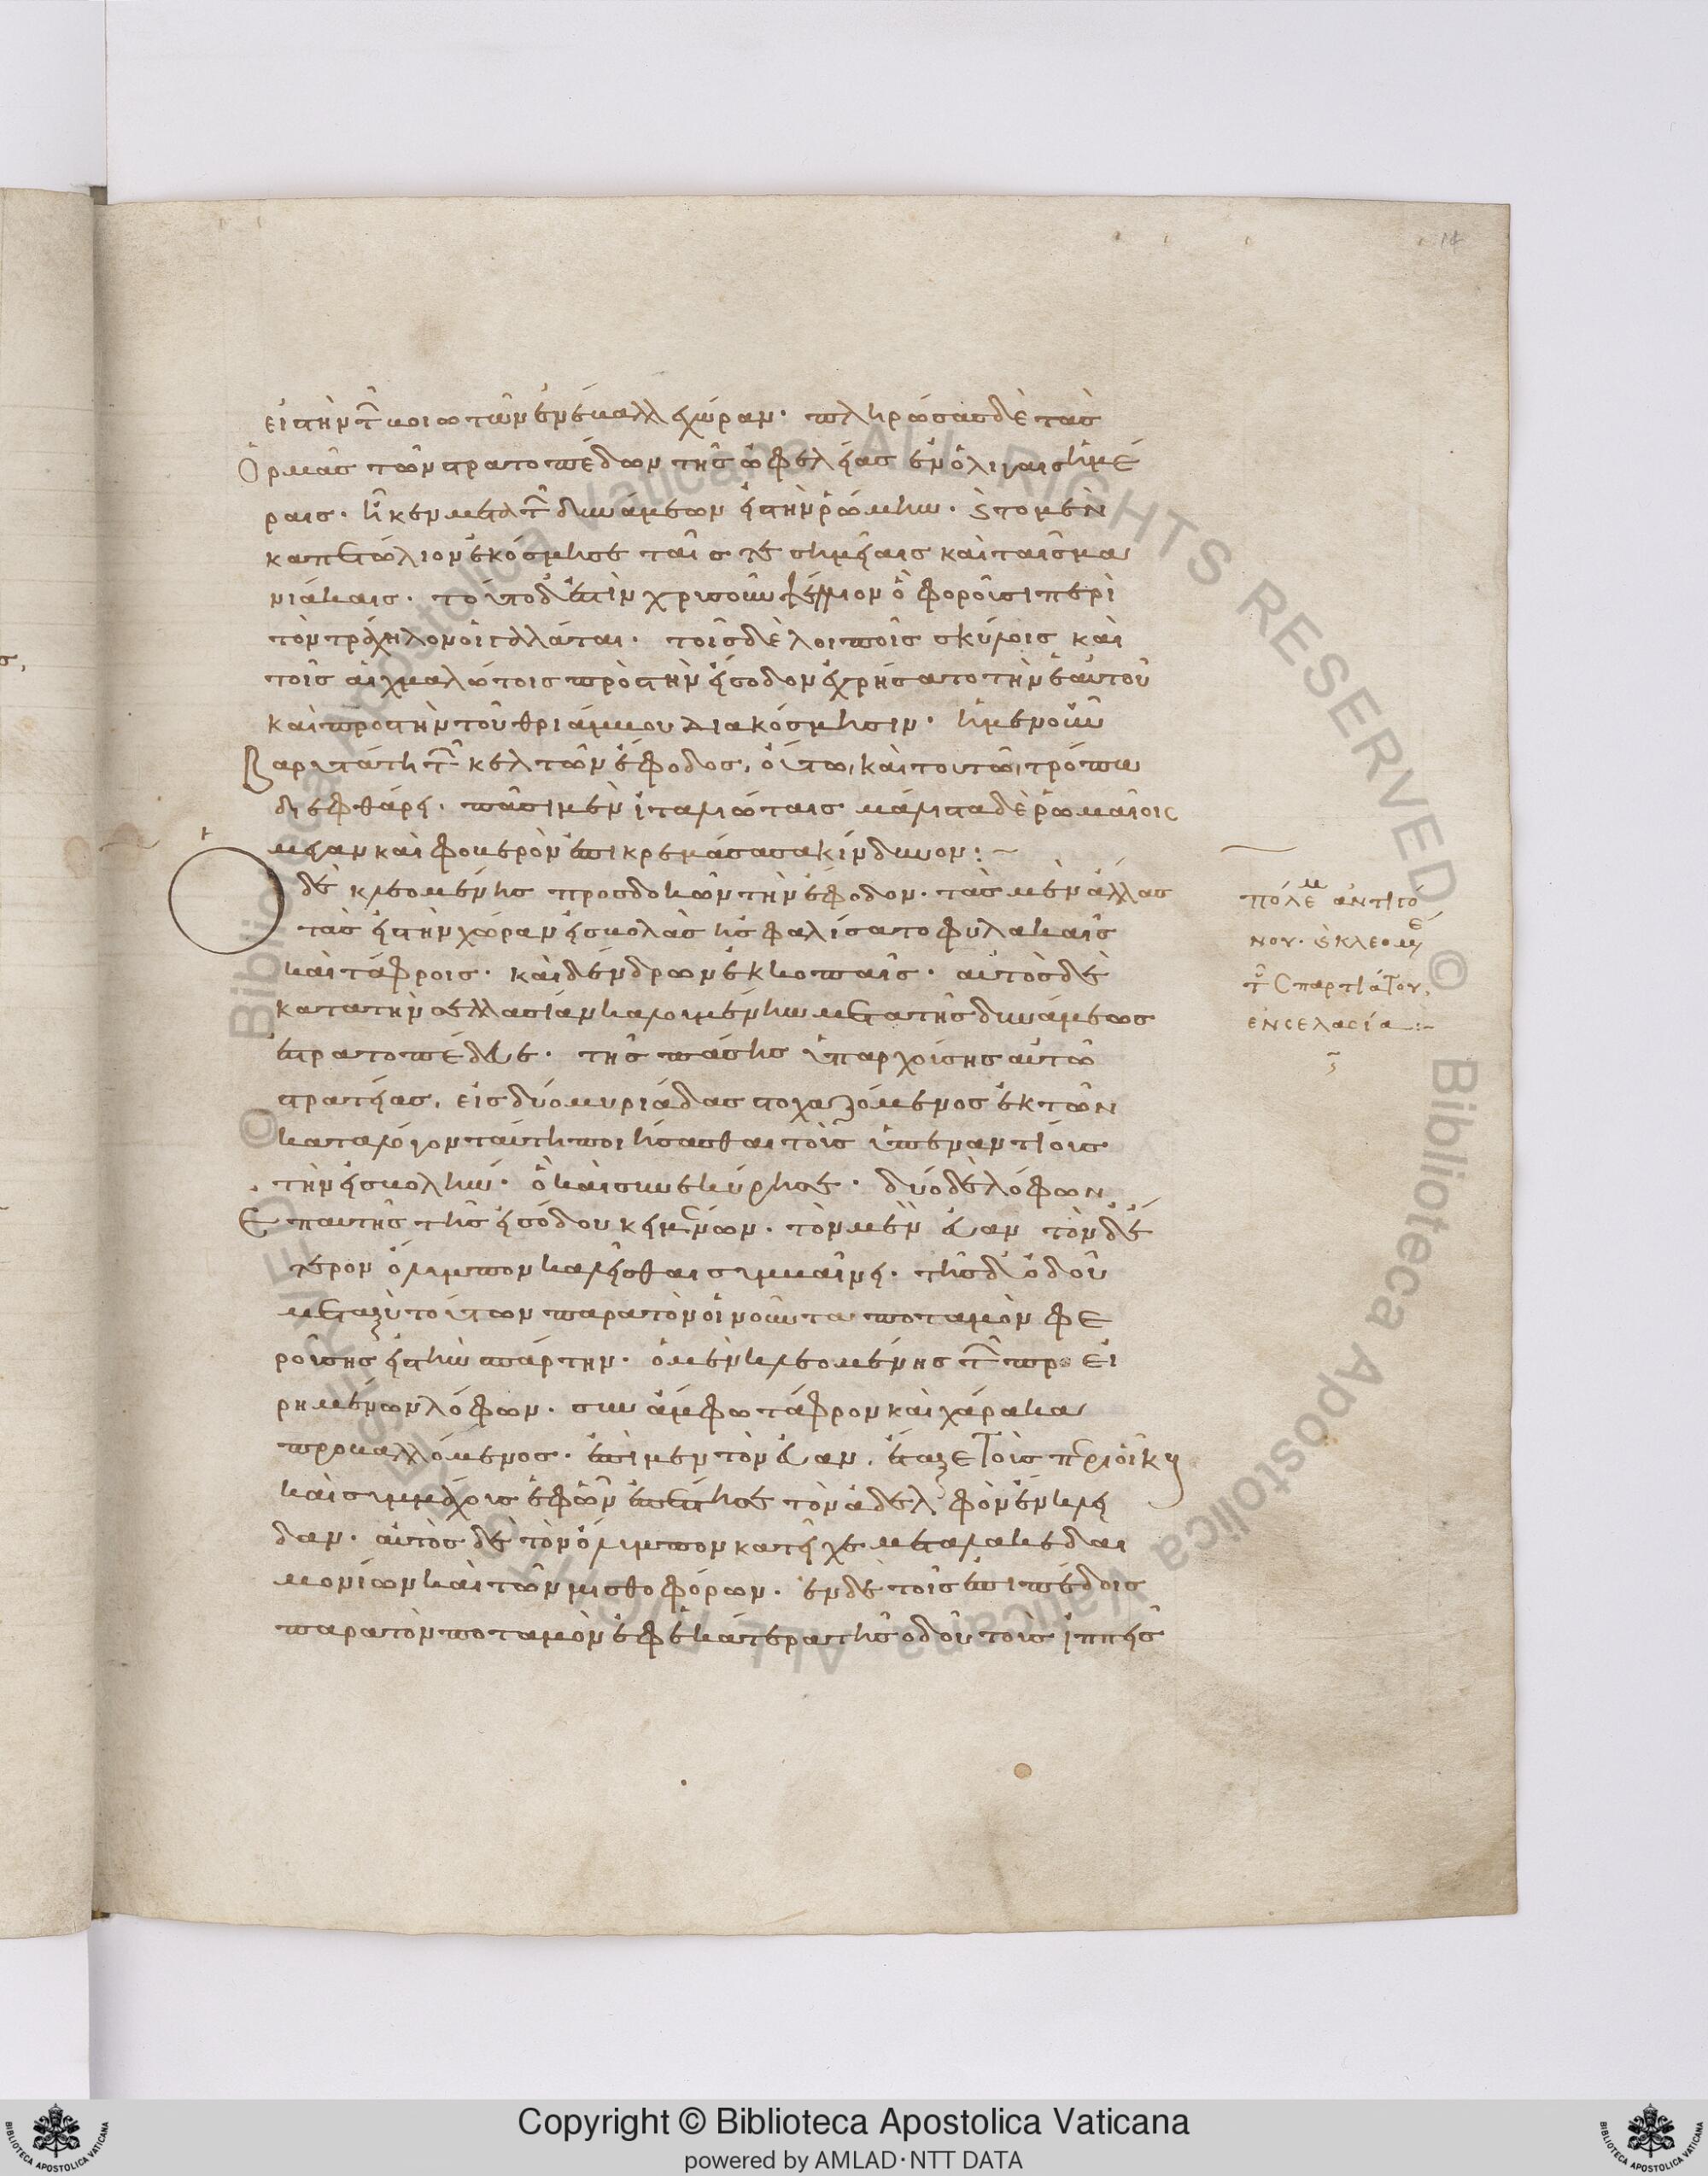 14
εἰς τὴν τῶν βοιωτῶν ἐνέβαλλε χώραν· πληρώσας δὲ τὰς
ὁρμὰς τῶν στρατοπέδων τῆς ὠφελείας ἐν ὀλίγαις ἡμέ
ραις· ἧκεν μετὰ τῶν δυνάμεων εἰς τὴν ῥώμην· καὶ τὸ μὲν
καπετώλιον ἐκόσμησε ταῖς τε σημείαις καὶ τοῖς μα
νιάκαις· τοῦτο δ' ἐστὶν χρυσοῦν ψέλλιον ὃ φοροῦσι περὶ
τὸν τράχηλον οἱ γαλάται· τοῖς δὲ λοιποῖς σκύλοις καὶ
τοῖς αἰχμαλώτοις πρὸς τὴν εἴσοδον ἐχρήσατο τὴν ἑαυτοῦ
καὶ πρὸς τὴν τοῦ θριάμβου διακόσμησιν· ἡ μὲν οὖν
βαρυτάτη τῶν κελτῶν ἔφοδος, οὕτω, καὶ τούτω, τρόπω
διεφθάρει· πᾶσι μὲν ἰταλιώταις μάλιστα δὲ ῥωμαίοις
μέγαν καὶ φοβερὸν ἐπικρεμάσασα κίνδυνον:~
Ὁ δὲ κλεομένης προσδοκῶν τὴν ἔφοδον· τὰς μὲν ἄλλας
τὰς εἰς τὴν χώραν εἰσβολὰς ἠσφαλίσατο φυλακαῖς
καὶ τάφροις· καὶ δένδρων ἐκκοπαῖς· αὐτὸς δὲ
κατὰ τὴν σελλασίαν καλουμένην μετὰ τῆς δυνάμεως
ἐστρατοπέδευε· τῆς πάσης ὑπαρχούσης αὐτῶ
στρατείας, εἰς δύο μυριάδας στοχαζόμενος ἐκ τῶν
κατὰ λόγον ταύτη ποιήσασθαι τοὺς ὑπεναντίους
τὴν εἰσβολήν· ὃ καὶ συνεκύρησε· δύο δὲ λόφων
ἐπ' αυτῆς τῆς εἰσόδου κειμένων· τὸν μὲν εὔαν τὸν δ' ἕ
τερον ὄλυμπον καλεῖσθαι συμβαίνει· τῆς δ' ὁδοῦ
μεταξὺ τούτων παρὰ τὸν οἰνοῦντα ποταμὸν φε
ρούσης εἰς τὴν σπάρτην· ὁ μὲν κλεομένης τῶν προει
ρημένων λόφων· συνάμφω τάφρον καὶ χάρακα
προβαλλόμενος· ἐπὶ μὲν τὸν εὔαν, ἔταξε τοὺς περιοίκους
καὶ συμμάχους ἐφ' ὧν ἐπέστησε τὸν ἀδελφὸν εὐκλεί
δαν· αὐτὸς δὲ τὸν ὄλυμπον κατεῖχε μετὰ λακεδαι
μονίων καὶ τῶν μισθοφόρων· ἐν δὲ τοῖς ἐπιπέδοις
παρὰ τὸν ποταμὸν ἐφ' ἑκάτερα τῆς ὁδοῦ τοὺς ἱππεῖς
πόλεμ ἀντιγό
νου· καὶ κλεομέν
τοῦ Σπαρτιάτου,
ἐν σελασία:~